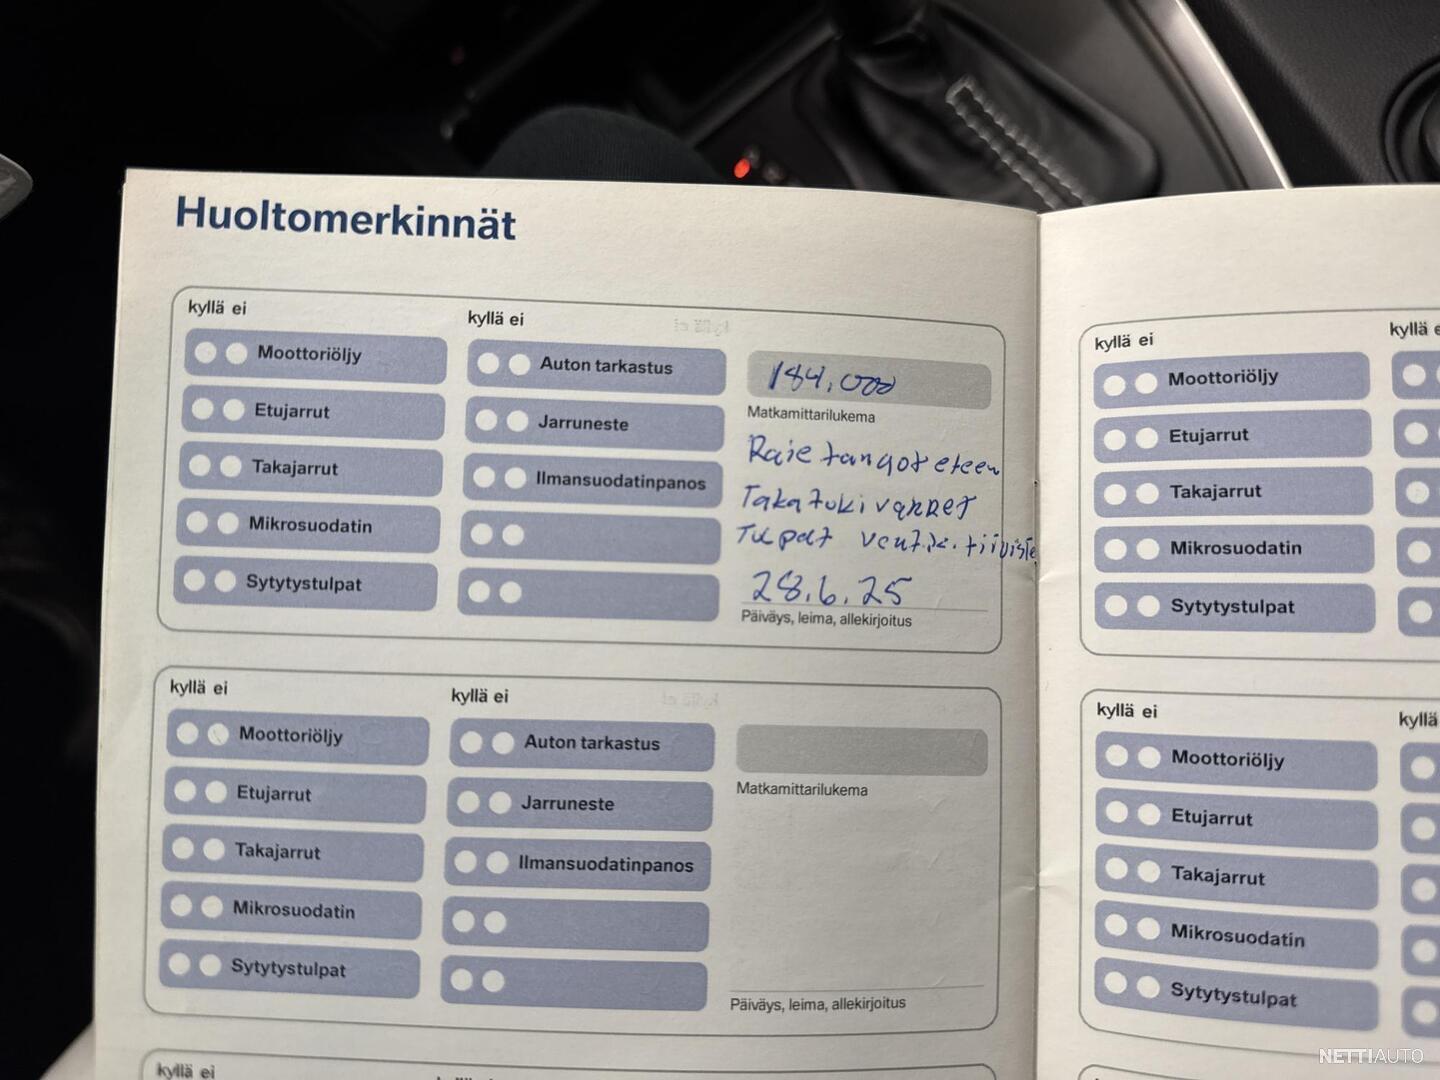 Huoltomerkinnät
kyllä ei
Moottoriöljy
Etujarrut
Takajarrut
Mikrosuodatin
Sytytystulpat
kyllä ei
Auton tarkastus
Jarruneste
Ilmansuodatinpanos
184.000
Matkamittarilukema
Raie tangot eteen
Takatukivarret
Tulpat vent.k.tiiviste
28.6.25
Päiväys, leima, allekirjoitus
kyllä ei
Moottoriöljy
Etujarrut
Takajarrut
Mikrosuodatin
Sytytystulpat
kyllä ei
Auton tarkastus
Jarruneste
Ilmansuodatinpanos
Matkamittarilukema
Päiväys, leima, allekirjoitus
kyllä ei
kyllä ei
Moottoriöljy
Etujarrut
Takajarrut
Mikrosuodatin
Sytytystulpat
kyllä e
kyllä ei
Moottoriöljy
Etujarrut
Takajarrut
Mikrosuodatin
Sytytystulpat
kyllä
NETTIAUTO